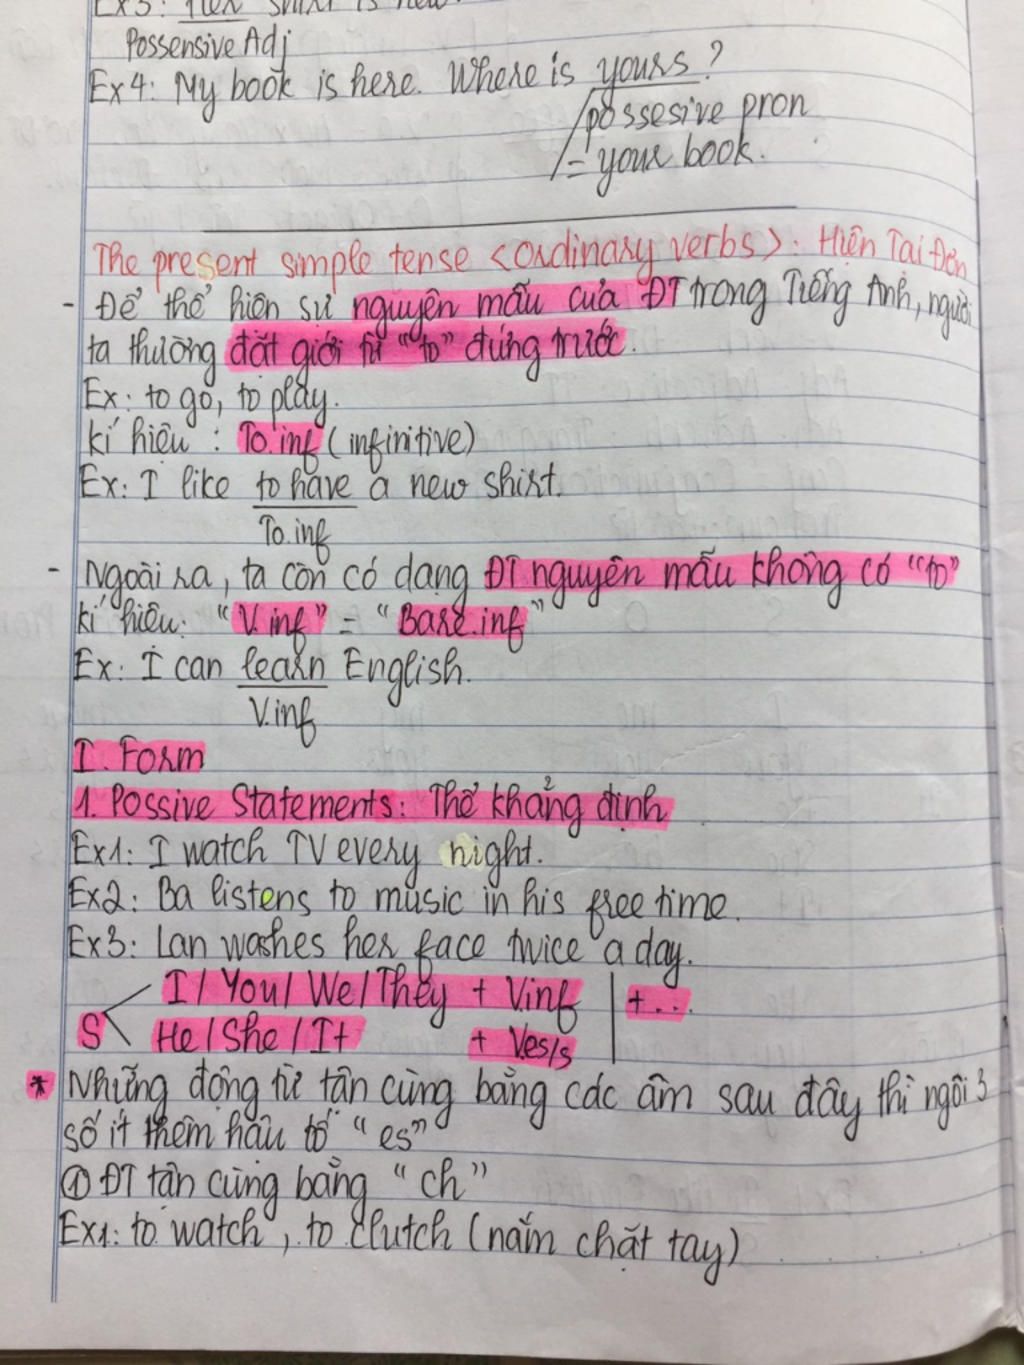 Ex3: Her shirt is new.
Possensive Adj
Ex4: My book is here. Where is yours?
possesive pron
= your book.
The present simple tense <Ordinary verbs>: Hiện Tại Đơn
- Để thể hiện sự nguyên mẫu của ĐT trong Tiếng Anh, người
ta thường đặt giới từ "to" đứng trước.
Ex: to go, to play.
kí hiệu : To.inf (infinitive)
Ex: I like to have a new shirt.
To.inf
- Ngoài ra, ta còn có dạng ĐT nguyên mẫu không có "to"
kí hiệu: "V.inf" = "Bare.inf"
Ex: I can learn English.
V.inf
I. Form
1. Possive Statements: Thể khẳng định
Ex1: I watch TV every night.
Ex2: Ba listens to music in his free time.
Ex3: Lan washes her face twice a day.
I / You / We / They + Vinf | + ...
S
He / She / It + Ves/s
* Những động từ tận cùng bằng các âm sau đây thì ngôi 3
số ít thêm hậu tố "es"
① ĐT tận cùng bằng "ch"
Ex1: to watch, to clutch (nắm chặt tay)